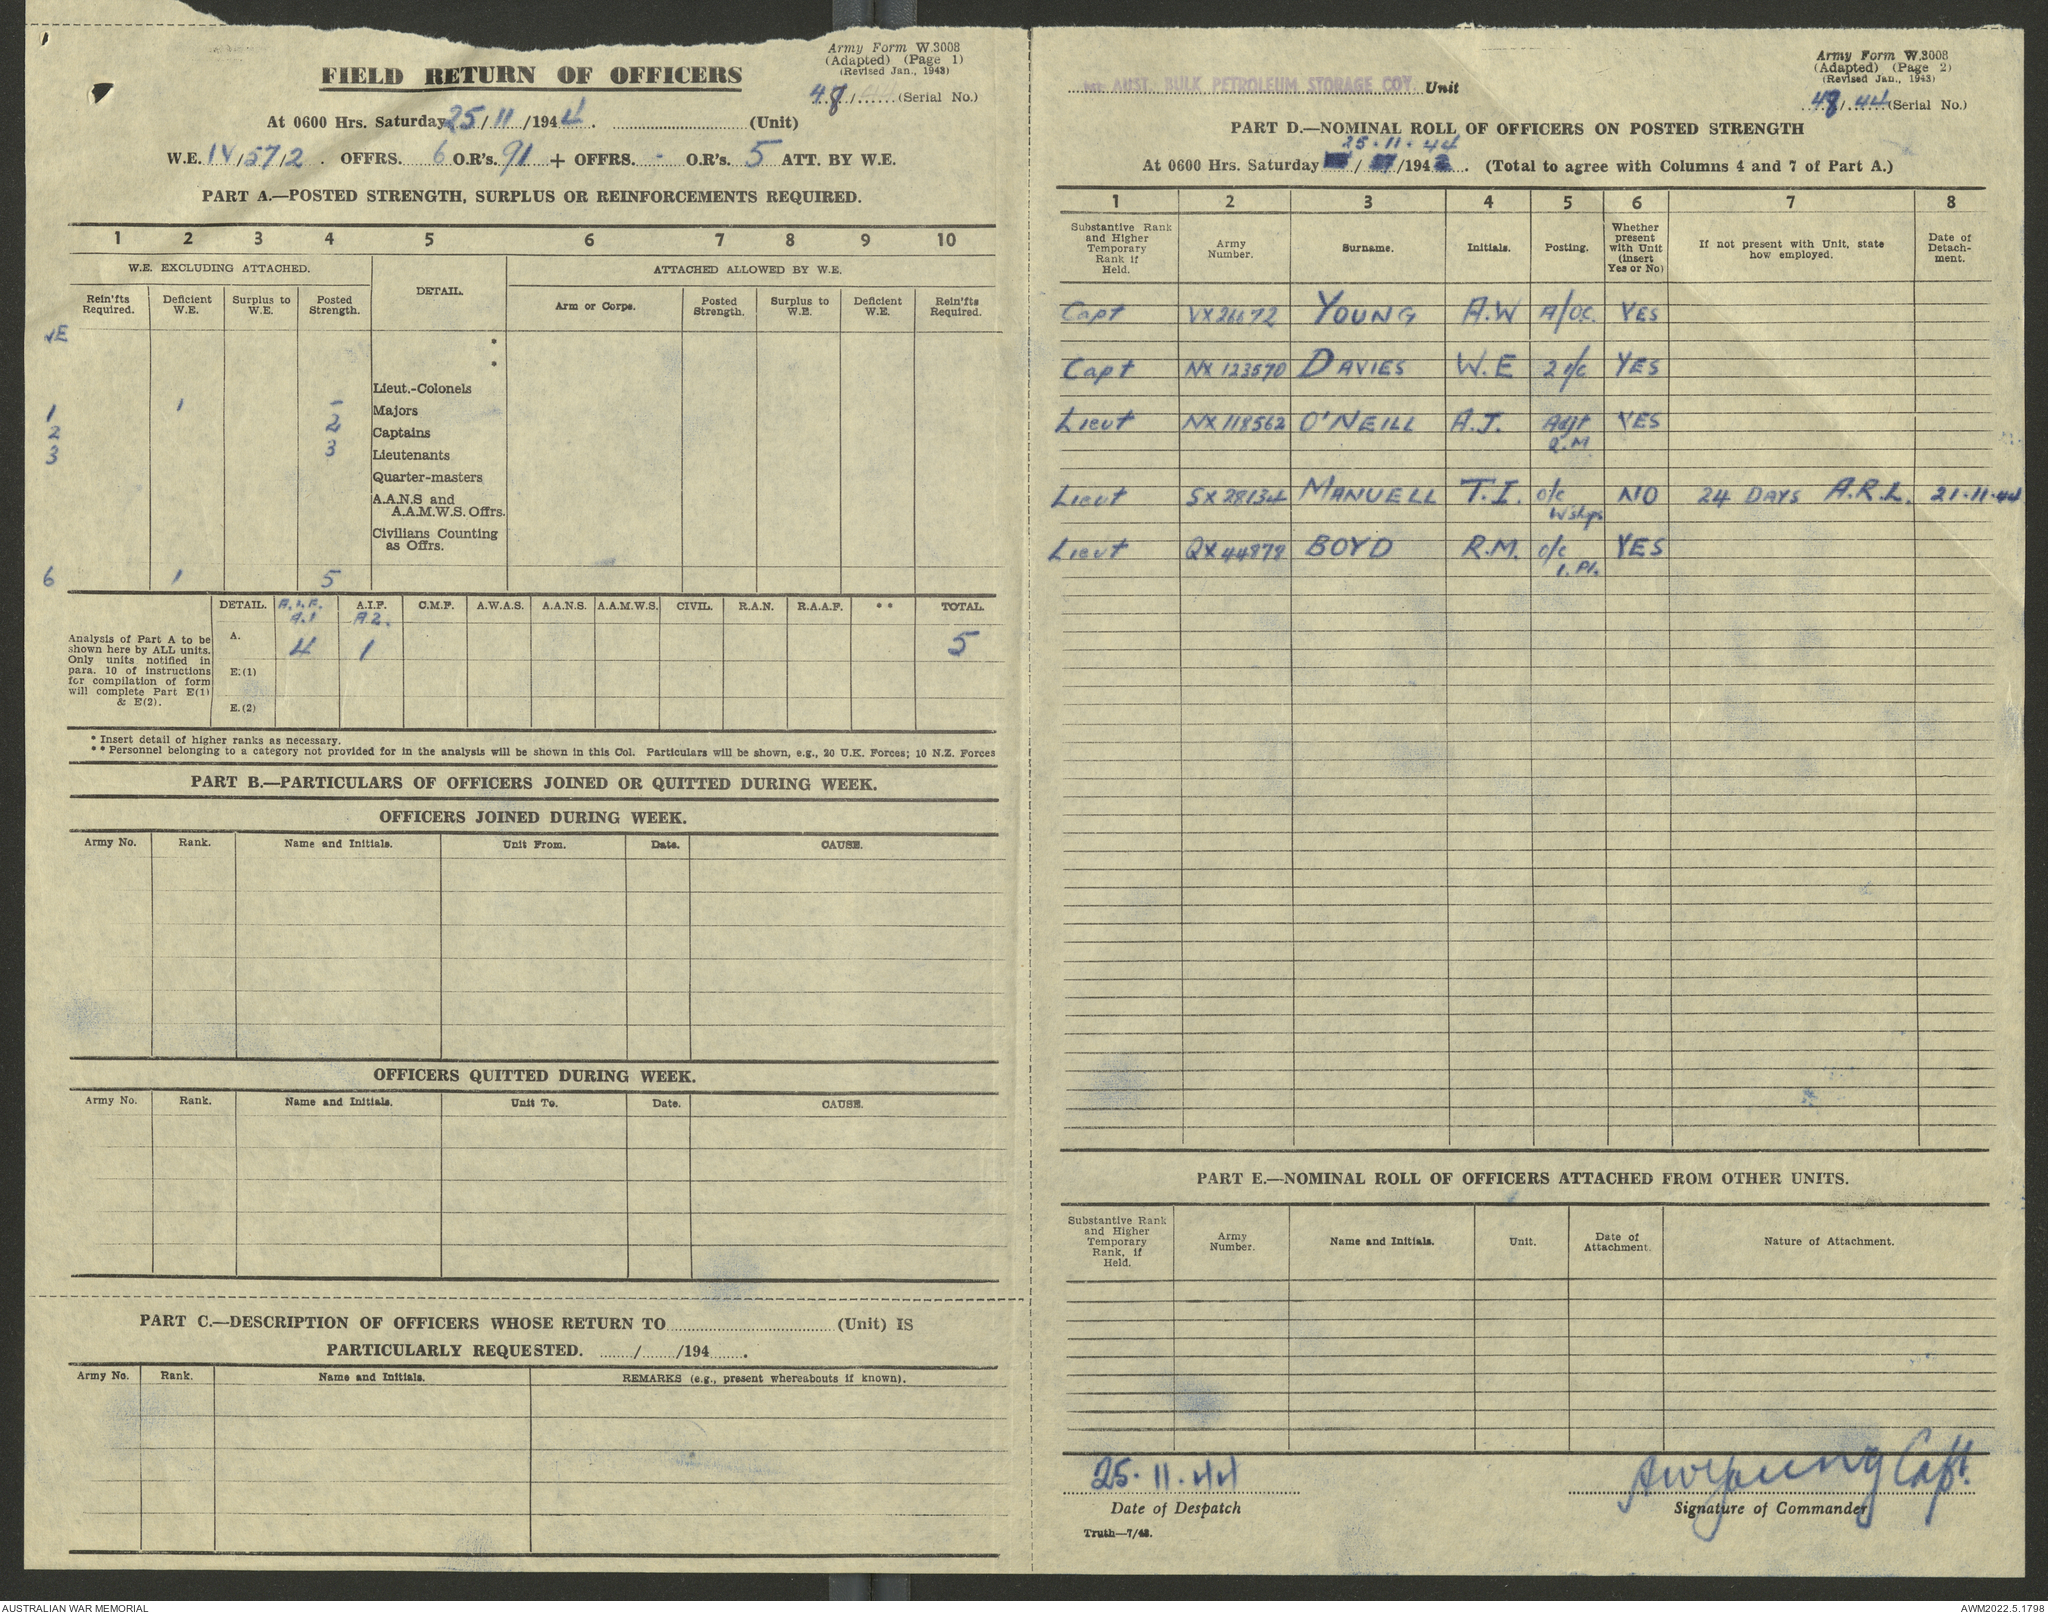 Army Form W.3008
(Adapted) (Page 1)
(Revised Jan., 1943)
FIELD RETURN OF OFFICERS
48/...... (Serial No.)
At 0600 Hrs. Saturday 25/11/1944. (Unit)
W.E. IV/57/2. OFFRS. 6 O.R's. 91 + OFFRS. - O.R's. 5 ATT. BY W.E.
PART A.—POSTED STRENGTH, SURPLUS OR REINFORCEMENTS REQUIRED.
1 2 3 4 5 6 7 8 9 10
W.E. EXCLUDING ATTACHED. DETAIL. ATTACHED ALLOWED BY W.E.
Rein'fts Required. Deficient W.E. Surplus to W.E. Posted Strength. Arm or Corps. Posted Strength. Surplus to W.E. Deficient W.E. Rein'fts Required.
WE
*
*
Lieut.-Colonels
1 1 - Majors
2 2 Captains
3 3 Lieutenants
Quarter-masters
A.A.N.S and
A.A.M.W.S. Offrs.
Civilians Counting
as Offrs.
6 1 5
DETAIL. A.I.F. A.1 A.I.F. A2. C.M.F. A.W.A.S. A.A.N.S. A.A.M.W.S. CIVIL. R.A.N. R.A.A.F. ** TOTAL.
Analysis of Part A to be
shown here by ALL units.
Only units notified in
para. 10 of instructions
for compilation of form
will complete Part E(1)
& E(2).
A. 4 1 5
E.(1)
E.(2)
* Insert detail of higher ranks as necessary.
** Personnel belonging to a category not provided for in the analysis will be shown in this Col. Particulars will be shown, e.g., 20 U.K. Forces; 10 N.Z. Forces
PART B.—PARTICULARS OF OFFICERS JOINED OR QUITTED DURING WEEK.
OFFICERS JOINED DURING WEEK.
Army No. Rank. Name and Initials. Unit From. Date. CAUSE.
OFFICERS QUITTED DURING WEEK.
Army No. Rank. Name and Initials. Unit To. Date. CAUSE.
PART C.—DESCRIPTION OF OFFICERS WHOSE RETURN TO (Unit) IS
PARTICULARLY REQUESTED. ....../....../194......
Army No. Rank. Name and Initials. REMARKS (e.g., present whereabouts if known).
Army Form W.3008
(Adapted) (Page 2)
(Revised Jan., 1943)
AUST. BULK PETROLEUM STORAGE COY. Unit
48/44 (Serial No.)
PART D.—NOMINAL ROLL OF OFFICERS ON POSTED STRENGTH
25.11.44
At 0600 Hrs. Saturday / /194 . (Total to agree with Columns 4 and 7 of Part A.)
1 2 3 4 5 6 7 8
Substantive Rank and Higher Temporary Rank if Held. Army Number. Surname. Initials. Posting. Whether present with Unit (insert Yes or No) If not present with Unit, state how employed. Date of Detachment.
Capt VX26672 YOUNG A.W A/OC. YES
Capt NX 123570 DAVIES W.E 2 i/c YES
Lieut NX 118562 O'NEILL A.J. Adjt Q.M YES
Lieut SX 28134 MANUELL T.I. o/c Wshps NO 24 DAYS A.R.L. 21.11.44
Lieut QX 44878 BOYD R.M. o/c 1. Pl. YES
PART E.—NOMINAL ROLL OF OFFICERS ATTACHED FROM OTHER UNITS.
Substantive Rank and Higher Temporary Rank, if Held. Army Number. Name and Initials. Unit. Date of Attachment. Nature of Attachment.
25.11.44
AWYoung Capt.
Date of Despatch
Signature of Commander
Truth—7/43.
AUSTRALIAN WAR MEMORIAL
AWM2022.5.1798